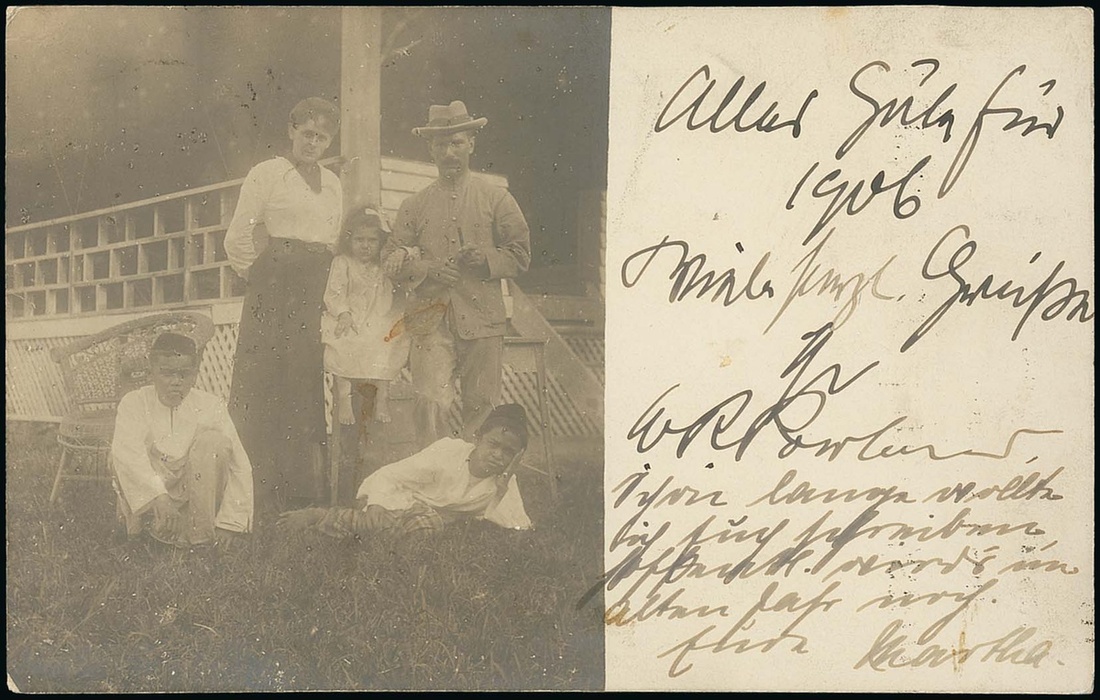 Alles Gute für
1906
Viele herzl. Grüße
Ihr
W R Rowland
Schon lange wollte
ich Euch schreiben
hoffentl. wird's im
alten Jahr noch.
Eure Martha.